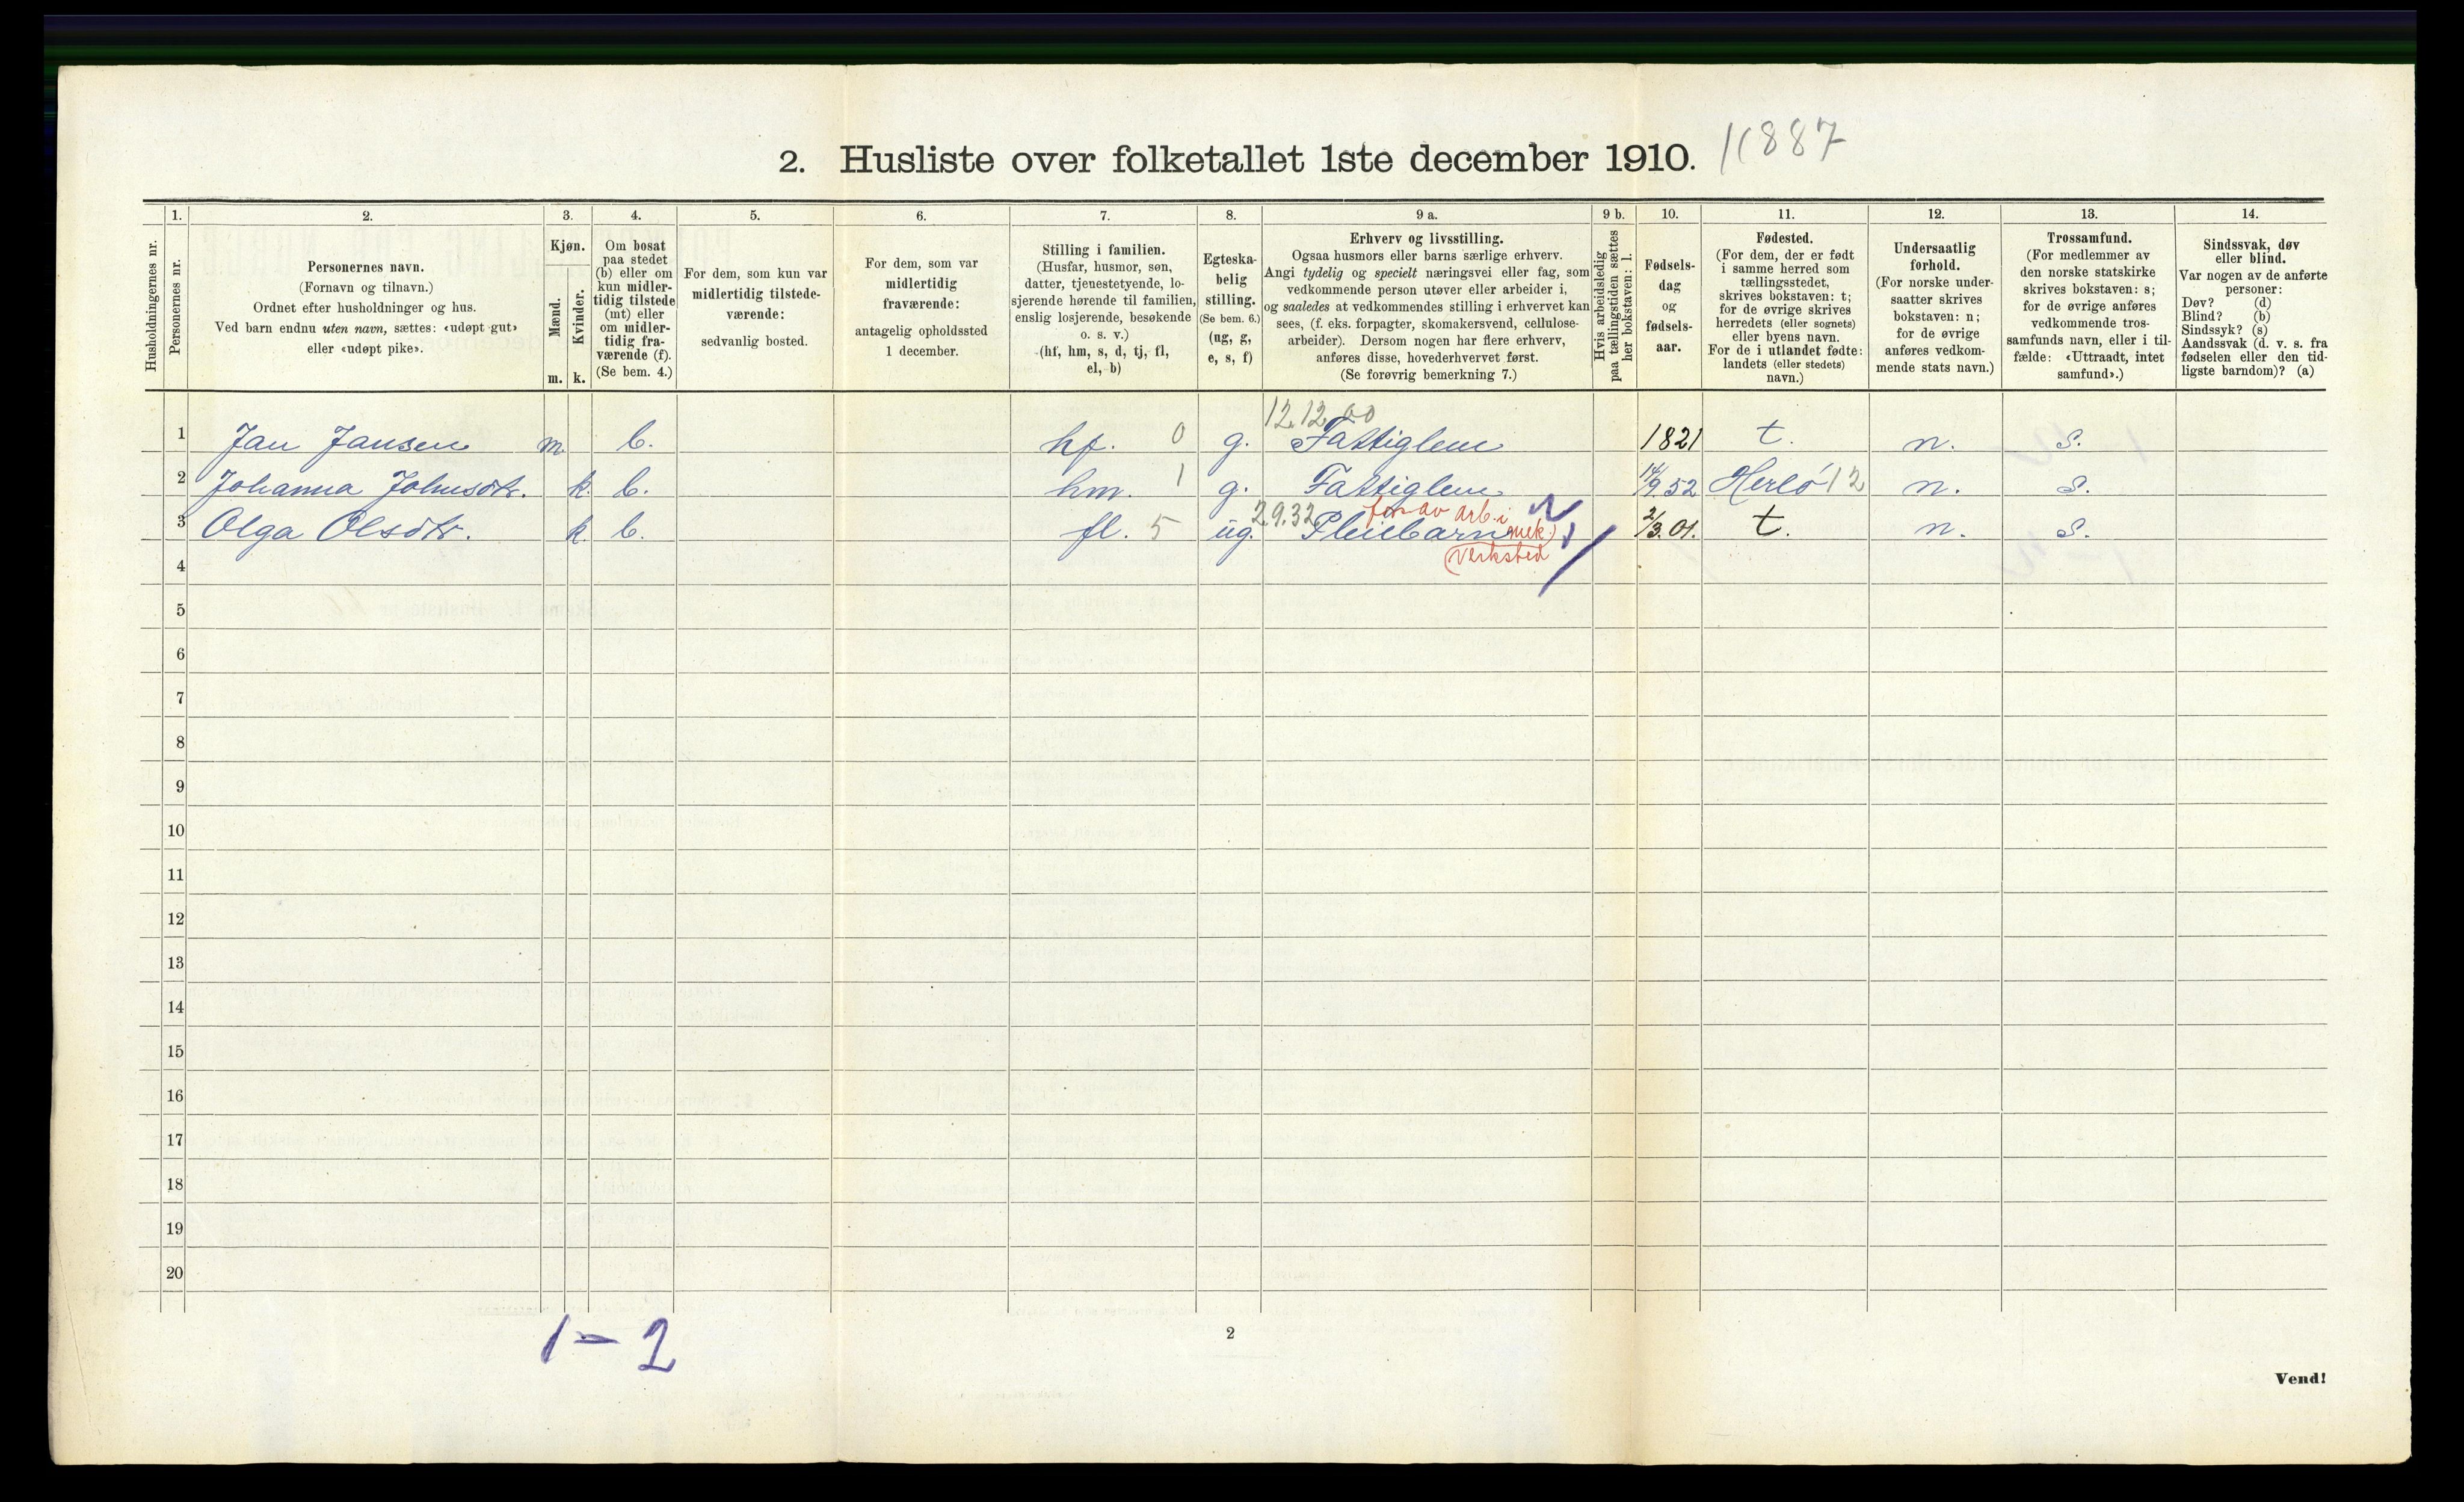 2. Husliste over folketallet 1ste december 1910. 11887
Husholdningernes nr.
1.
Personernes nr.
2.
Personernes navn.
(Fornavn og tilnavn.)
Ordnet efter husholdninger og hus.
Ved barn endnu uten navn, sættes: «udøpt gut»
eller «udøpt pike».
3.
Kjøn.
Mænd.
m.
Kvinder.
k.
4.
Om bosat
paa stedet
(b) eller om
kun midler-
tidig tilstede
(mt) eller
om midler-
tidig fra-
værende (f).
(Se bem. 4.)
5.
For dem, som kun var
midlertidig tilstede-
værende:
sedvanlig bosted.
6.
For dem, som var
midlertidig
fraværende:
antagelig opholdssted
1 december.
7.
Stilling i familien.
(Husfar, husmor, søn,
datter, tjenestetyende, lo-
sjerende hørende til familien,
enslig losjerende, besøkende
o. s. v.)
(hf, hm, s, d, tj, fl,
el, b)
8.
Egteska-
belig
stilling.
(Se bem. 6.)
(ug, g,
e, s, f)
9 a.
Erhverv og livsstilling.
Ogsaa husmors eller barns særlige erhverv.
Angi tydelig og specielt næringsvei eller fag, som
vedkommende person utøver eller arbeider i,
og saaledes at vedkommendes stilling i erhvervet kan
sees, (f. eks. forpagter, skomakersvend, cellulose-
arbeider). Dersom nogen har flere erhverv,
anføres disse, hovederhvervet først.
(Se forøvrig bemerkning 7.)
9 b.
Hvis arbeidsledig
paa tællingstiden sættes
her bokstaven: l.
10.
Fødsels-
dag
og
fødsels-
aar.
11.
Fødested.
(For dem, der er født
i samme herred som
tællingsstedet,
skrives bokstaven: t;
for de øvrige skrives
herredets (eller sognets)
eller byens navn.
For de i utlandet fødte:
landets (eller stedets)
navn.)
12.
Undersaatlig
forhold.
(For norske under-
saatter skrives
bokstaven: n;
for de øvrige
anføres vedkom-
mende stats navn.)
13.
Trossamfund.
(For medlemmer av
den norske statskirke
skrives bokstaven: s;
for de øvrige anføres
vedkommende tros-
samfunds navn, eller i til-
fælde: «Uttraadt, intet
samfund».)
14.
Sindssvak, døv
eller blind.
Var nogen av de anførte
personer:
Døv? (d)
Blind? (b)
Sindssyk? (s)
Aandssvak (d. v. s. fra
fødselen eller den tid-
ligste barndom)? (a)
12.12.00
1 Jan Jansen m. b. hf. 0 g. Fattiglem 1821 t. n. s.
2 Johanna Johnsdtr. k. b. hm. 1 g. Fattiglem 14/9.52 Herlö 12 n. s.
2.9.32 av arb. i
3 Olga Olsdtr. k. b. fl. 5 ug. Pleiebarn mek. 2/3.01. t. n. s.
verksted
4
5
6
7
8
9
10
11
12
13
14
15
16
17
18
19
20
1 – 2
2
Vend!